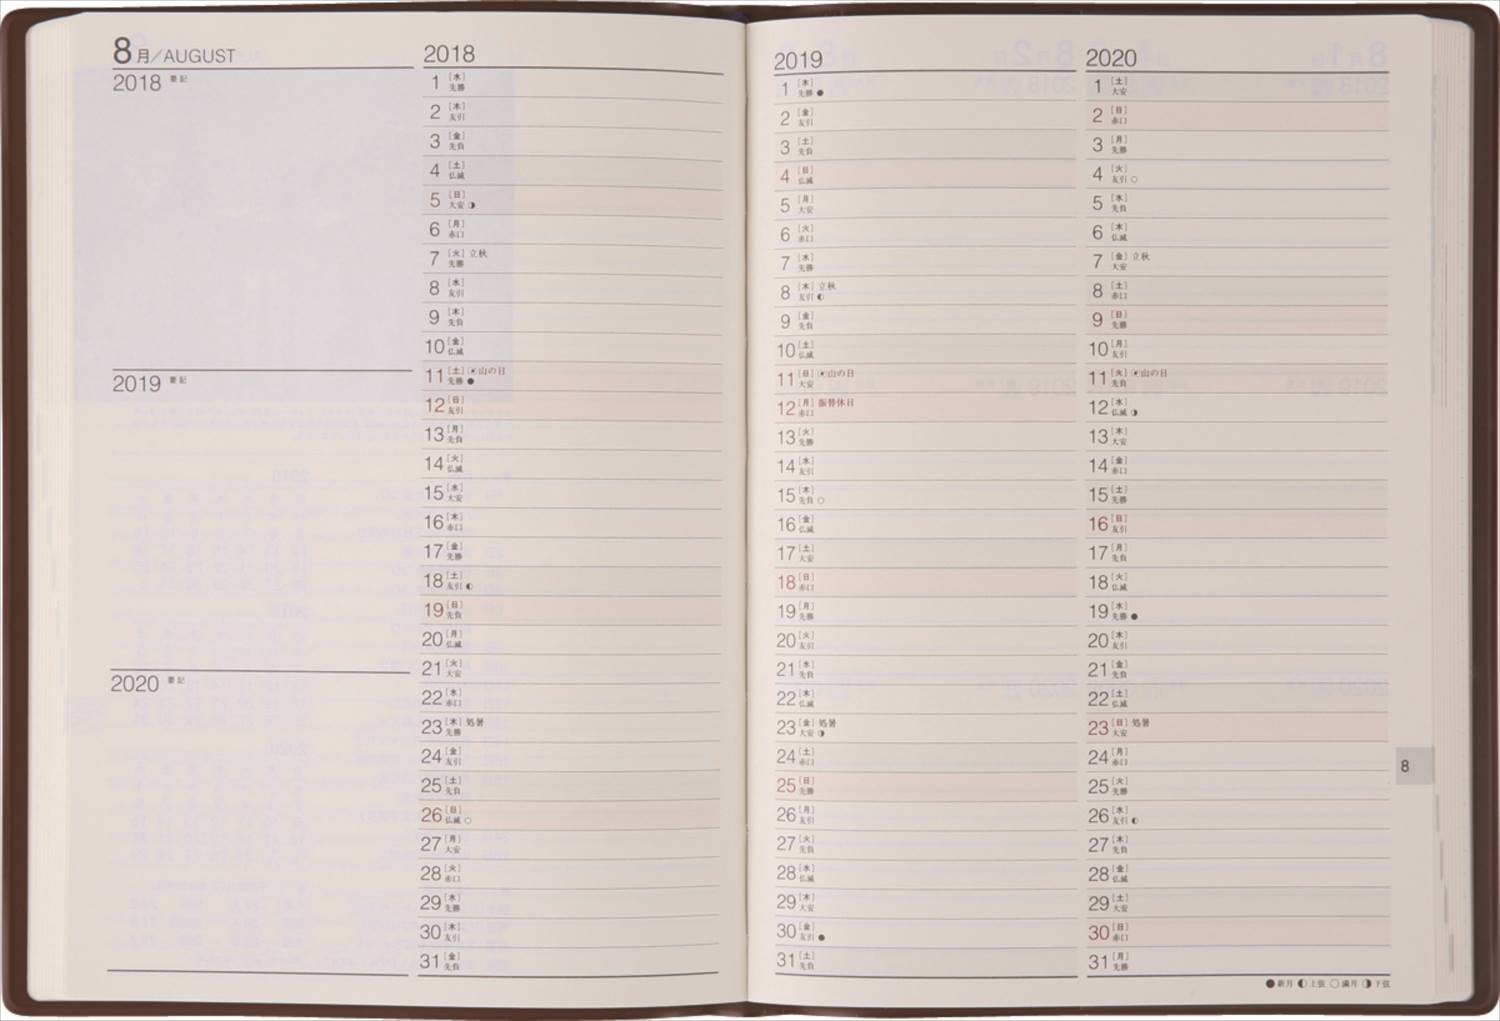 8月/AUGUST
2018 要記
2019 要記
2020 要記
2018
1 [水] 先勝
2 [木] 友引
3 [金] 先負
4 [土] 仏滅
5 [日] 大安 ◑
6 [月] 赤口
7 [火] 立秋 先勝
8 [水] 友引
9 [木] 先負
10 [金] 仏滅
11 [土] 山の日 先勝 ●
12 [日] 友引
13 [月] 先負
14 [火] 仏滅
15 [水] 大安
16 [木] 赤口
17 [金] 先勝
18 [土] 友引 ◐
19 [日] 先負
20 [月] 仏滅
21 [火] 大安
22 [水] 赤口
23 [木] 処暑 先勝
24 [金] 友引
25 [土] 先負
26 [日] 仏滅 ○
27 [月] 大安
28 [火] 赤口
29 [水] 先勝
30 [木] 友引
31 [金] 先負
2019
1 [木] 先勝 ●
2 [金] 友引
3 [土] 先負
4 [日] 仏滅
5 [月] 大安
6 [火] 赤口
7 [水] 先勝
8 [木] 立秋 友引 ◐
9 [金] 先負
10 [土] 仏滅
11 [日] 山の日 大安
12 [月] 振替休日 赤口
13 [火] 先勝
14 [水] 友引
15 [木] 先負 ○
16 [金] 仏滅
17 [土] 大安
18 [日] 赤口
19 [月] 先勝
20 [火] 友引
21 [水] 先負
22 [木] 仏滅
23 [金] 処暑 大安 ◑
24 [土] 赤口
25 [日] 先勝
26 [月] 友引
27 [火] 先負
28 [水] 仏滅
29 [木] 大安
30 [金] 友引 ●
31 [土] 先負
2020
1 [土] 大安
2 [日] 赤口
3 [月] 先勝
4 [火] 友引 ○
5 [水] 先負
6 [木] 仏滅
7 [金] 立秋 大安
8 [土] 赤口
9 [日] 先勝
10 [月] 友引
11 [火] 山の日 先負
12 [水] 仏滅 ◑
13 [木] 大安
14 [金] 赤口
15 [土] 先勝
16 [日] 友引
17 [月] 先負
18 [火] 仏滅
19 [水] 先勝 ●
20 [木] 友引
21 [金] 先負
22 [土] 仏滅
23 [日] 処暑 大安
24 [月] 赤口
25 [火] 先勝
26 [水] 友引 ◐
27 [木] 先負
28 [金] 仏滅
29 [土] 大安
30 [日] 赤口
31 [月] 先勝
8
●新月 ◐上弦 ○満月 ◑下弦